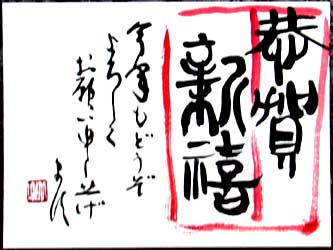 恭賀
新禧
今年もどうぞ
よろしく
お願い申し上げ